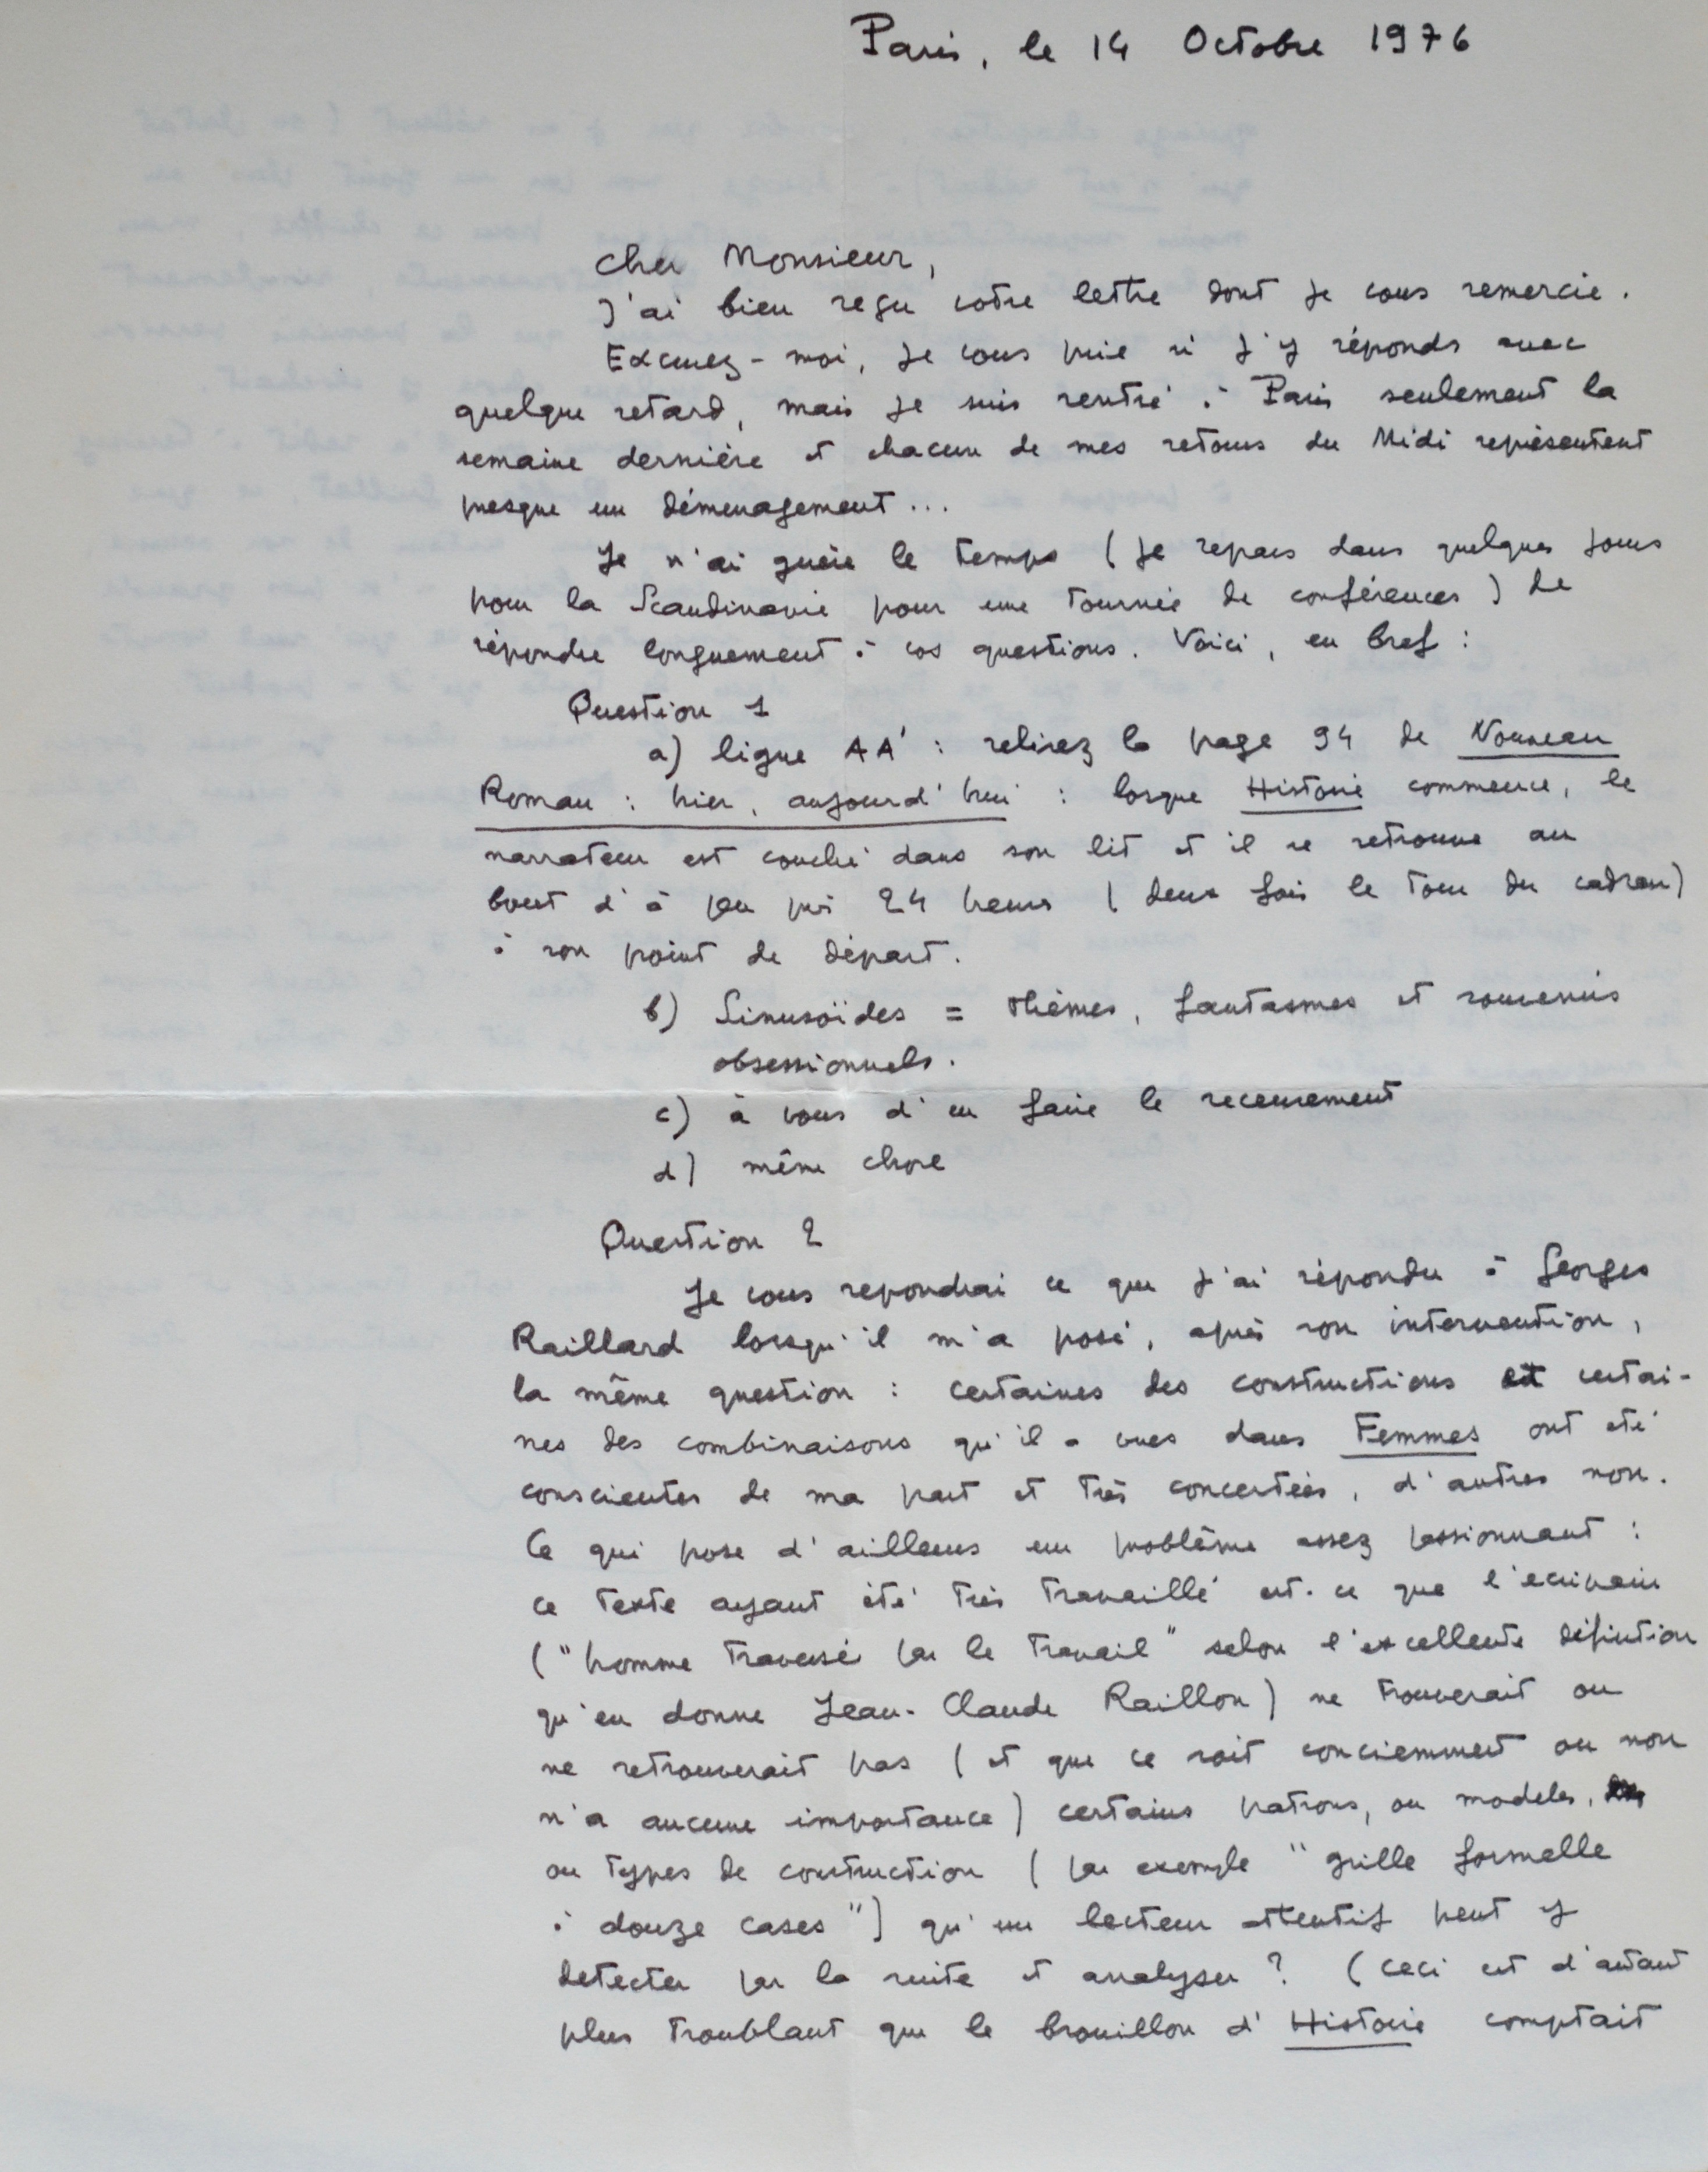 Paris, le 14 Octobre 1976
Cher Monsieur,
J'ai bien reçu votre lettre dont je vous remercie.
Excusez-moi, je vous prie si j'y réponds avec
quelque retard, mais je suis rentré à Paris seulement la
semaine dernière et chacun de mes retours du Midi représentent
presque un déménagement...
Je n'ai guère le temps (je repars dans quelques jours
pour la Scandinavie pour une tournée de conférences) de
répondre longuement à vos questions. Voici, en bref :
Question 1
a) ligne AA' : relisez la page 94 de Nouveau
Roman : hier, aujourd'hui : lorsque Histoire commence, le
narrateur est couché dans son lit et il se retrouve au
bout d'à peu près 24 heures (deux fois le tour du cadran)
à son point de départ.
b) Sinusoïdes = thèmes, fantasmes et souvenirs
obsessionnels.
c) à vous d'en faire le recensement
d) même chose
Question 2
Je vous repondrai ce que j'ai répondu à Georges
Raillard lorsqu'il m'a posé, après son intervention,
la même question : certaines des constructions et certai-
nes des combinaisons qu'il a vues dans Femmes ont été
conscientes de ma part et très concertées, d'autres non.
Ce qui pose d'ailleurs un problème assez passionnant :
ce texte ayant été très travaillé est-ce que l'écrivain
("homme traversé par le travail" selon l'excellente définition
qu'en donne Jean-Claude Raillon) ne trouverait ou
ne retrouverait pas (et que ce soit consciemment ou non
n'a aucune importance) certains patrons, ou modèles,
ou types de construction (par exemple "grille formelle
à douze cases") qu'un lecteur attentif peut y
detecter par la suite et analyser ? (ceci est d'autant
plus troublant que le brouillon d'Histoire comptait